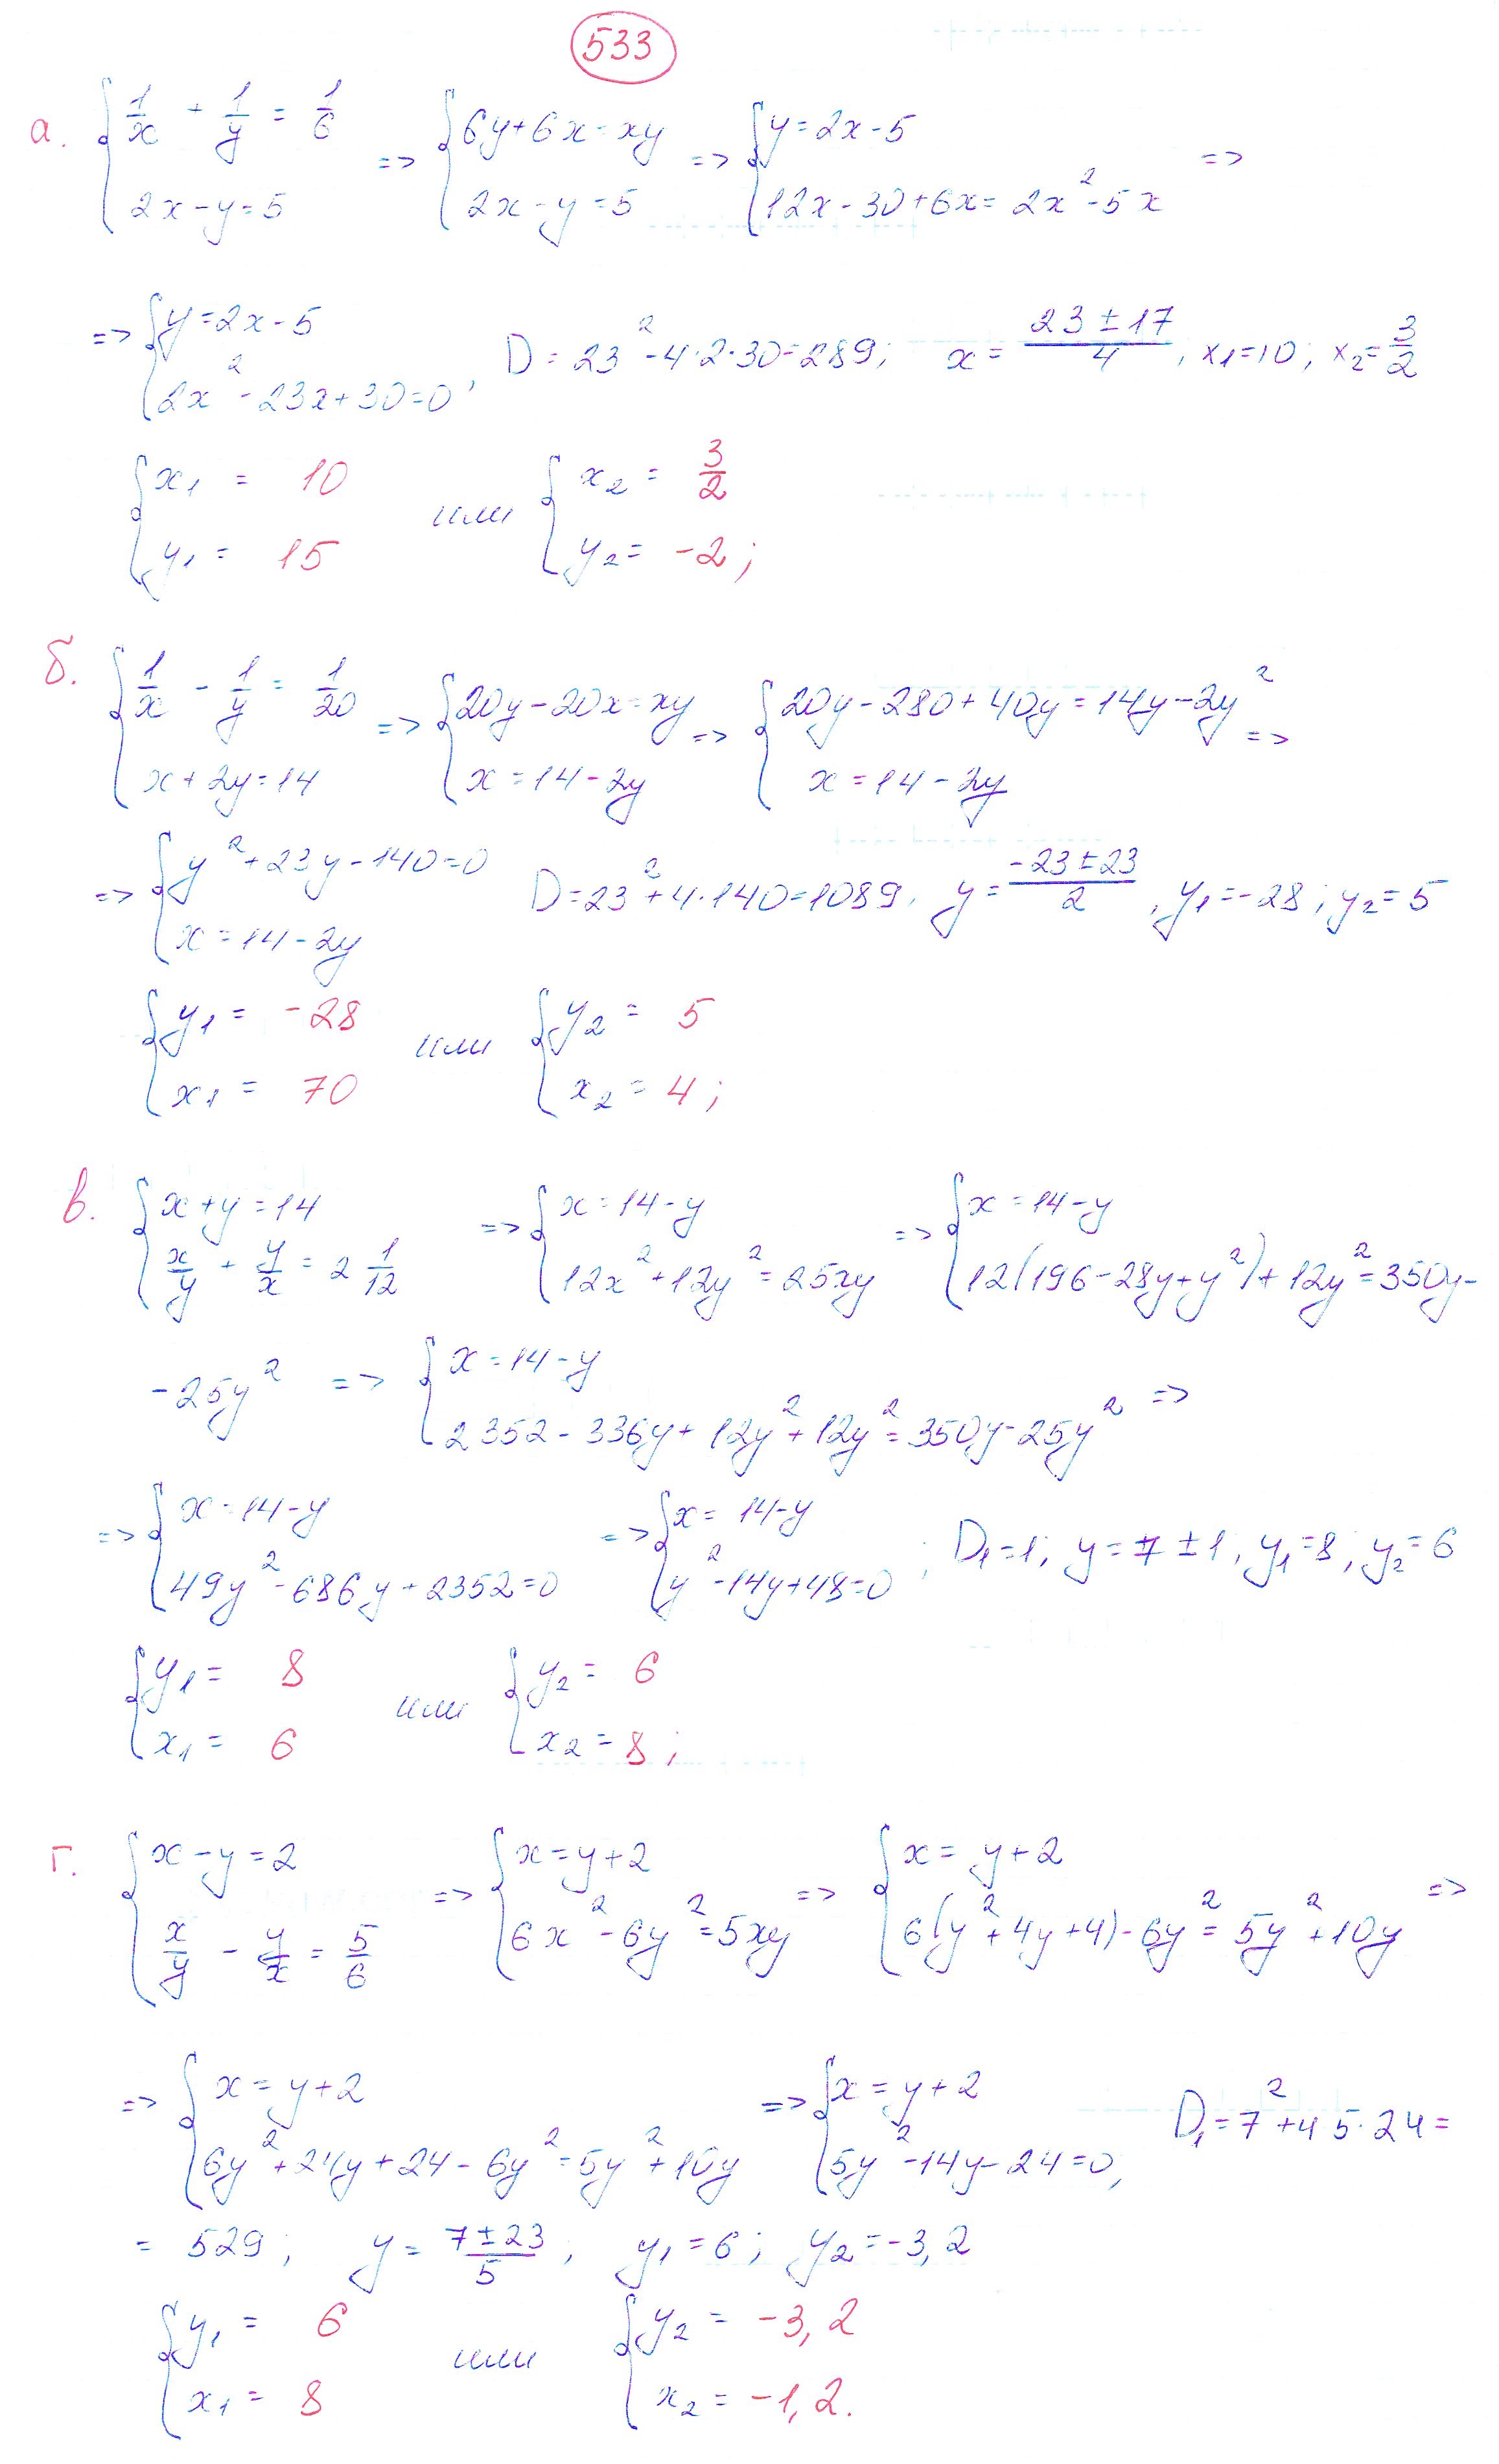 533
а. { 1/x + 1/y = 1/6 ; 2x - y = 5 => { 6y + 6x = xy ; 2x - y = 5 => { y = 2x - 5 ; 12x - 30 + 6x = 2x² - 5x =>
=> { y = 2x - 5 ; 2x² - 23x + 30 = 0 , D = 23² - 4·2·30 = 289; x = (23 ± 17)/4 , x₁ = 10; x₂ = 3/2
{ x₁ = 10 ; y₁ = 15 или { x₂ = 3/2 ; y₂ = -2;
б. { 1/x - 1/y = 1/20 ; x + 2y = 14 => { 20y - 20x = xy ; x = 14 - 2y => { 20y - 280 + 40y = 14y - 2y² ; x = 14 - 2y =>
=> { y² + 23y - 140 = 0 ; x = 14 - 2y D = 23² + 4·140 = 1089, y = (-23 ± 23)/2 , y₁ = -28; y₂ = 5
{ y₁ = -28 ; x₁ = 70 или { y₂ = 5 ; x₂ = 4;
в. { x + y = 14 ; x/y + y/x = 2 1/12 => { x = 14 - y ; 12x² + 12y² = 25xy => { x = 14 - y ; 12(196 - 28y + y²) + 12y² = 350y -
- 25y² => { x = 14 - y ; 2352 - 336y + 12y² + 12y² = 350y - 25y² =>
=> { x = 14 - y ; 49y² - 686y + 2352 = 0 => { x = 14 - y ; y² - 14y + 48 = 0 ; D₁ = 1; y = 7 ± 1, y₁ = 8; y₂ = 6
{ y₁ = 8 ; x₁ = 6 или { y₂ = 6 ; x₂ = 8;
г. { x - y = 2 ; x/y - y/x = 5/6 => { x = y + 2 ; 6x² - 6y² = 5xy => { x = y + 2 ; 6(y² + 4y + 4) - 6y² = 5y² + 10y =>
=> { x = y + 2 ; 6y² + 24y + 24 - 6y² = 5y² + 10y => { x = y + 2 ; 5y² - 14y - 24 = 0, D₁ = 7² + 4 5·24 =
= 529; y = (7 ± 23)/5 ; y₁ = 6; y₂ = -3,2
{ y₁ = 6 ; x₁ = 8 или { y₂ = -3,2 ; x₂ = -1,2.